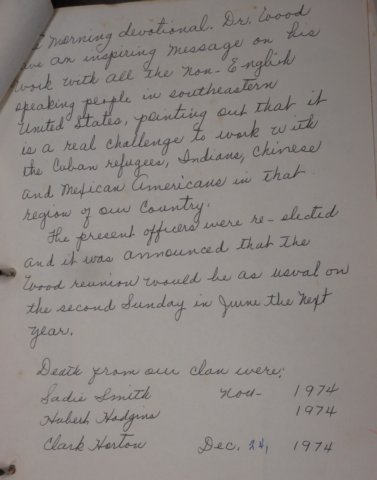 morning devotional. Dr. Wood
an inspiring message on his
work with all the non-English
speaking people in southeastern
United States, pointing out that it
is a real challenge to work with
the Cuban refugees, Indians, Chinese
and Mexican Americans in that
region of our Country.
The present officers were re-elected
and it was announced that the
Wood reunion would be as usual on
the second Sunday in June the next
year.
Death from our clan were:
Sadie Smith Nov- 1974
Hubert Hodgins 1974
Clark Horton Dec. 24, 1974